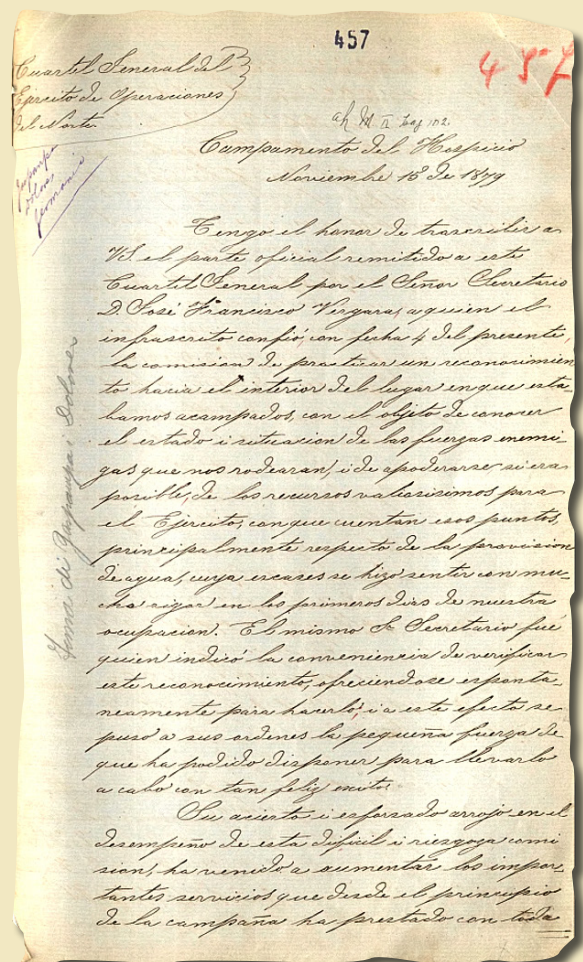 457
457
Cuartel Jeneral del
Ejército de Operaciones
del Norte
Campamento del Hospicio
Noviembre 15 de 1879
Tengo el honor de trascribir a
VS. el parte oficial remitido a este
Cuartel Jeneral por el Señor Secretario
D. José Francisco Vergara, a quien el
infrascrito confió, con fecha 4 del presente,
la comision de practicar un reconocimien
to hacia el interior del lugar en que esta-
bamos acampados, con el objeto de conocer
el estado i situacion de las fuerzas enemi-
gas que nos rodearan, i de apoderarse si era
posible, de los recursos valiosisimos para
el Ejército, con que cuentan esos puntos,
principalmente respecto de la provision
de agua, cuya escases se hizo sentir con mu-
cho rigor en los primeros dias de nuestra
ocupacion. El mismo Sr Secretario fué
quien indicó la conveniencia de verificar
este reconocimiento, ofreciendose esponta-
neamente para hacerlo; i a este efecto se
puso a sus ordenes la pequeña fuerza de
que ha podido disponer para llevarlo
a cabo con tan feliz exito.
Su acierto i esforzado arrojo en el
desempeño de esta dificil i riesgoza comi
sion, ha venido a aumentar los impor-
tantes servicios que desde el principio
de la campaña ha prestado con toda